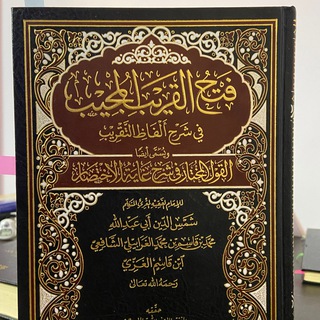 فتح القريب المجيب
في شرح ألفاظ التقريب
ويسمى أيضا
القول المختار في شرح غاية الاختصار
شمس الدين أبي عبد الله
محمد بن قاسم بن محمد الغرابيلي الشافعي
ابن قاسم الغزي
رحمه الله تعالى
حققه